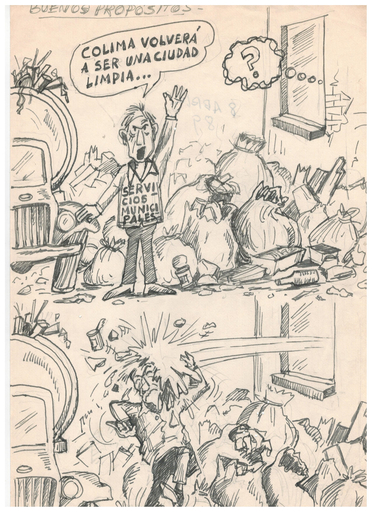 BUENOS PROPOSITOS-
COLIMA VOLVERÁ
A SER UNA CIUDAD
LIMPIA...
?
SERVI
CIOS
MUNICI
PALES